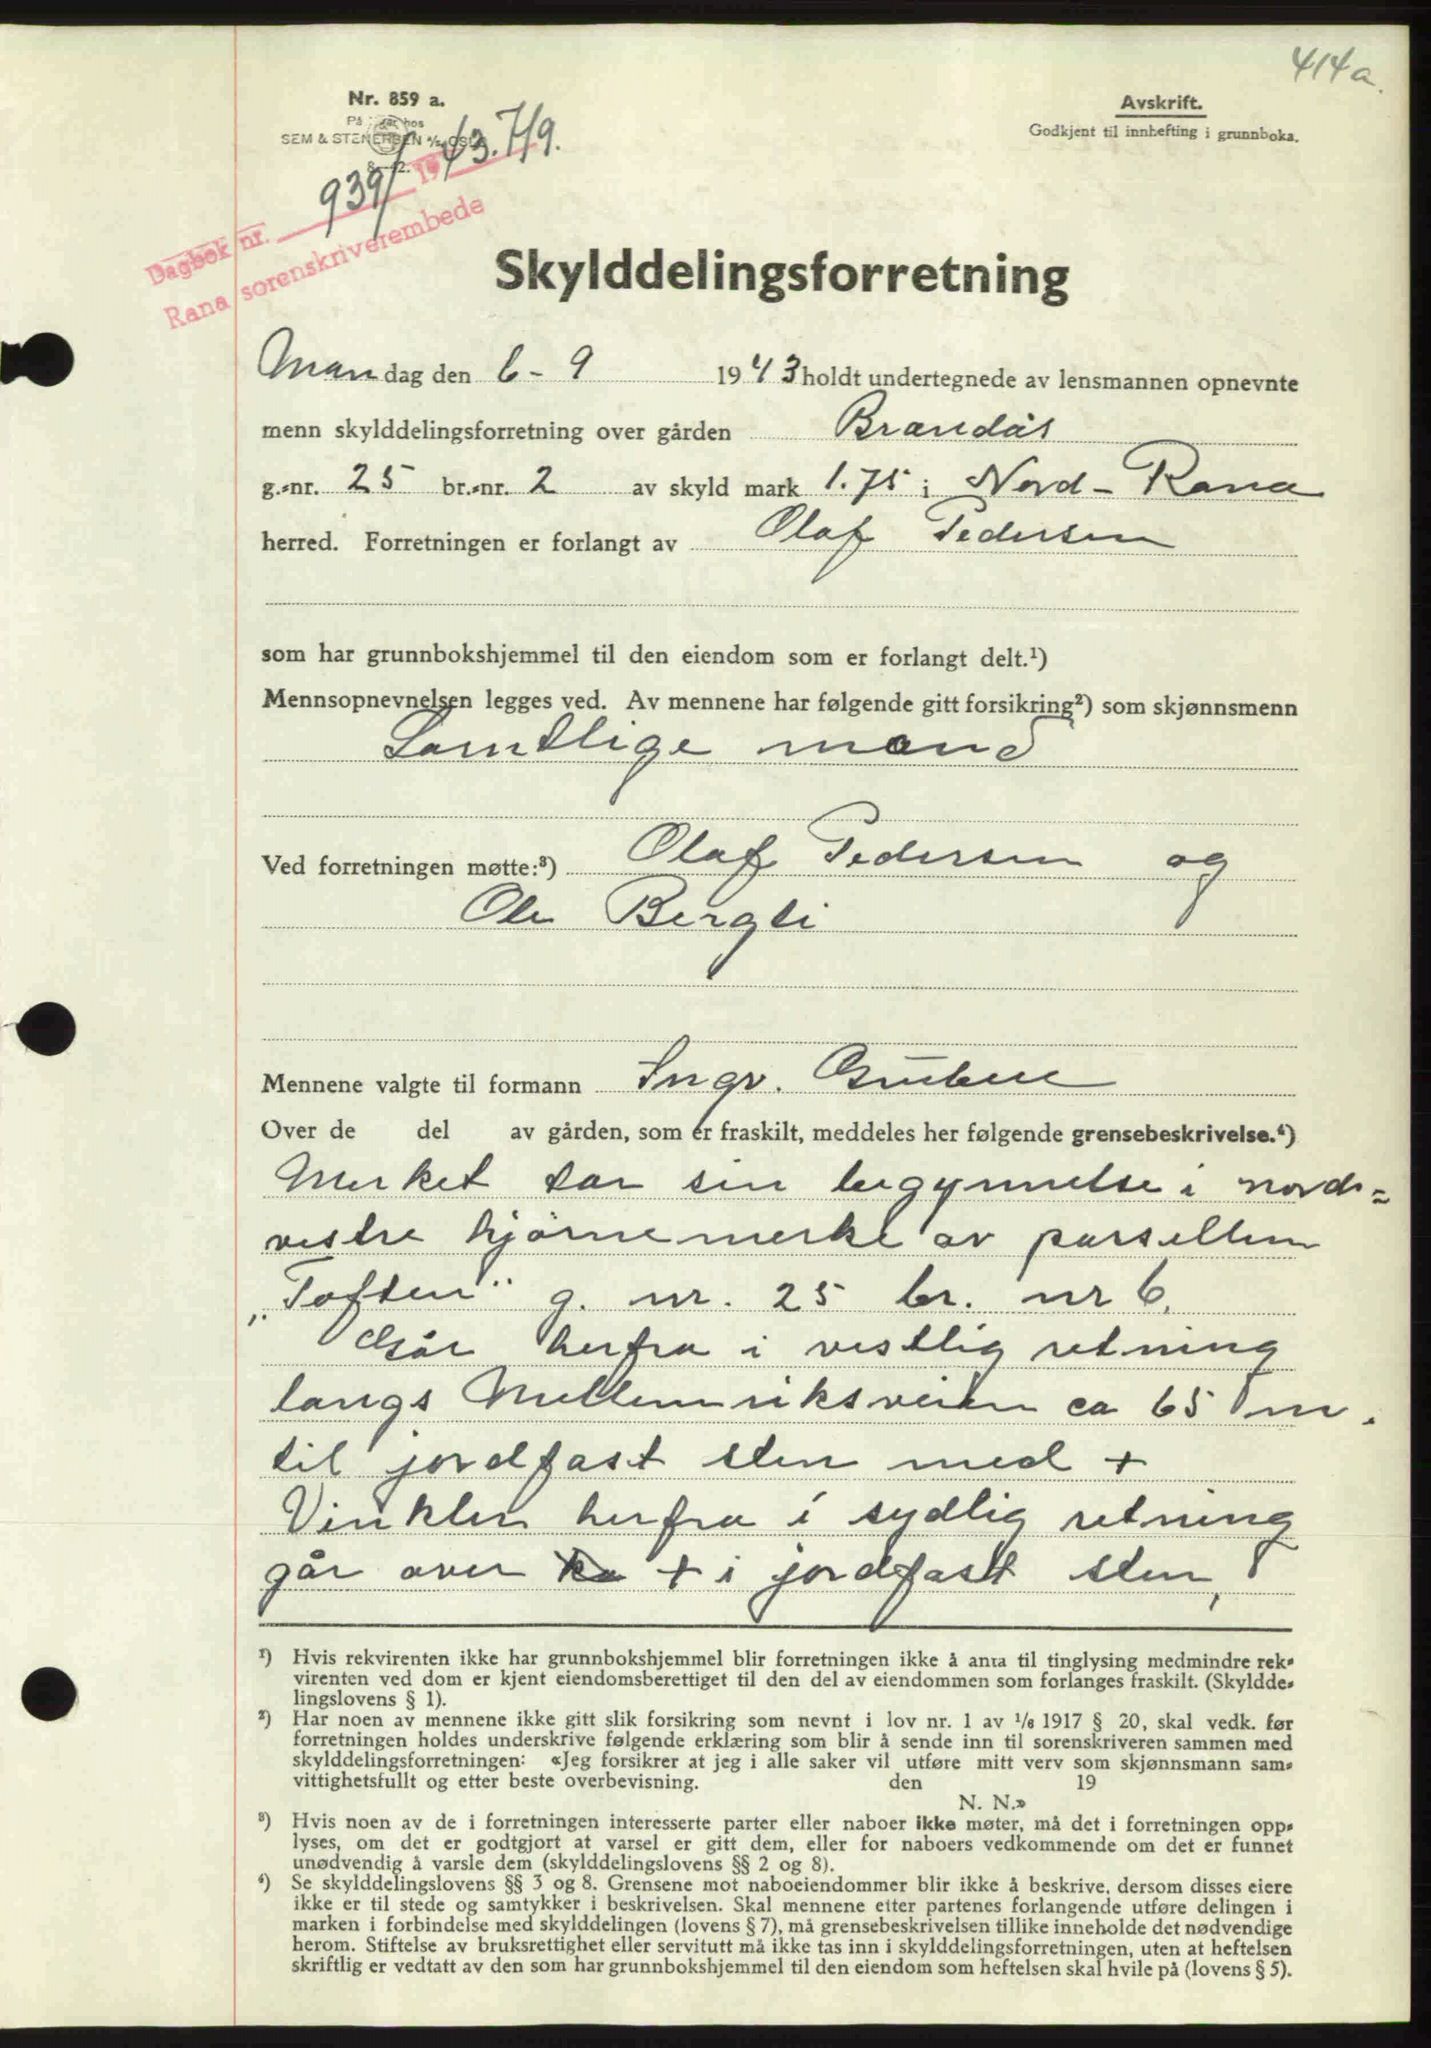 414a.
Nr. 859 a.
På lager hos
SEM & STENERSEN A/S, OSLO
8—42.
Avskrift.
Godkjent til innhefting i grunnboka.
Dagbok nr. 939/ 1943. 7/9.
Rana sorenskriverembede
Skylddelingsforretning
Mandag den 6-9 1943 holdt undertegnede av lensmannen opnevnte
menn skylddelingsforretning over gården Brandås
g.-nr. 25 br.-nr. 2 av skyld mark 1.75 i Nord-Rana
herred. Forretningen er forlangt av Olaf Pedersen
som har grunnbokshjemmel til den eiendom som er forlangt delt.¹)
Mennsopnevnelsen legges ved. Av mennene har følgende gitt forsikring²) som skjønnsmenn
Samtlige mænd
Ved forretningen møtte:³) Olaf Pedersen og
Ole Bergli
Mennene valgte til formann Ingv.
Over de del av gården, som er fraskilt, meddeles her følgende grensebeskrivelse.⁴)
Merket tar sin begynnelse i nord=
vestre hjørnemerke av parsellen
„Toften" g. nr. 25 br. nr 6.
Går herfra i vestlig retning
langs Mellemriksveien ca 65 m.
til jordfast sten med +
Vinkler herfra i sydlig retning
går over + i jordfast sten,
¹) Hvis rekvirenten ikke har grunnbokshjemmel blir forretningen ikke å anta til tinglysing medmindre rek-
virenten ved dom er kjent eiendomsberettiget til den del av eiendommen som forlanges fraskilt. (Skyldde-
lingslovens § 1).
²) Har noen av mennene ikke gitt slik forsikring som nevnt i lov nr. 1 av 1/6 1917 § 20, skal vedk. før
forretningen holdes underskrive følgende erklæring som blir å sende inn til sorenskriveren sammen med
skylddelingsforretningen: «Jeg forsikrer at jeg i alle saker vil utføre mitt verv som skjønnsmann sam-
vittighetsfullt og etter beste overbevisning. den 19
N. N.»
³) Hvis noen av de i forretningen interesserte parter eller naboer ikke møter, må det i forretningen opp-
lyses, om det er godtgjort at varsel er gitt dem, eller for naboers vedkommende om det er funnet
unødvendig å varsle dem (skylddelingslovens §§ 2 og 8).
⁴) Se skylddelingslovens §§ 3 og 8. Grensene mot naboeiendommer blir ikke å beskrive, dersom disses eiere
ikke er til stede og samtykker i beskrivelsen. Skal mennene etter partenes forlangende utføre delingen i
marken i forbindelse med skylddelingen (lovens § 7), må grensebeskrivelsen tillike inneholde det nødvendige
herom. Stiftelse av bruksrettighet eller servitutt må ikke tas inn i skylddelingsforretningen, uten at heftelsen
skriftlig er vedtatt av den som har grunnbokshjemmel til den eiendom som heftelsen skal hvile på (lovens § 5).